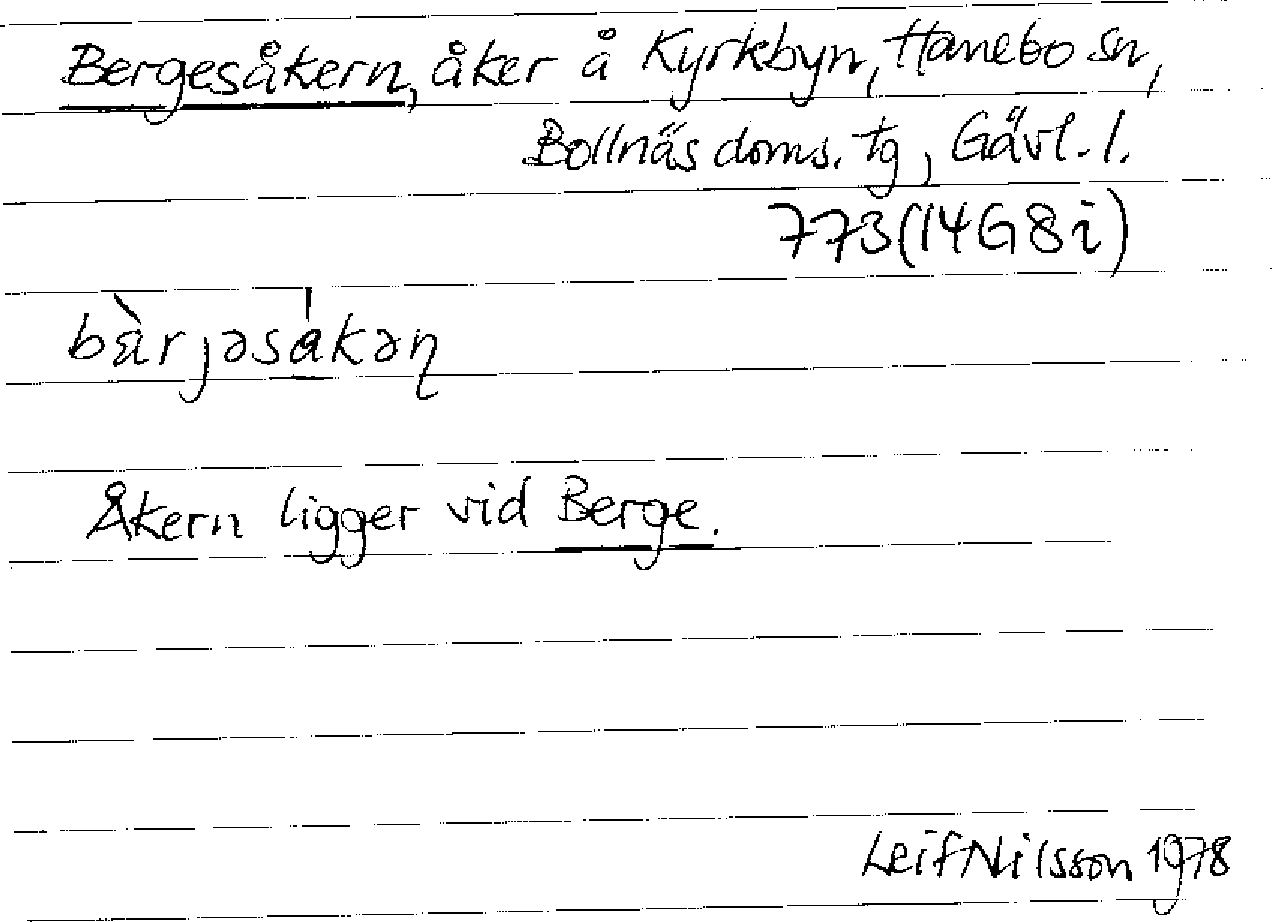 Bergesåkern, åker å Kyrkbyn, Hanebo sn,
Bollnäs doms. tg, Gävl. l.
773(14G8i)
bàrjəsákəɳ
Åkern ligger vid Berge.
Leif Nilsson 1978